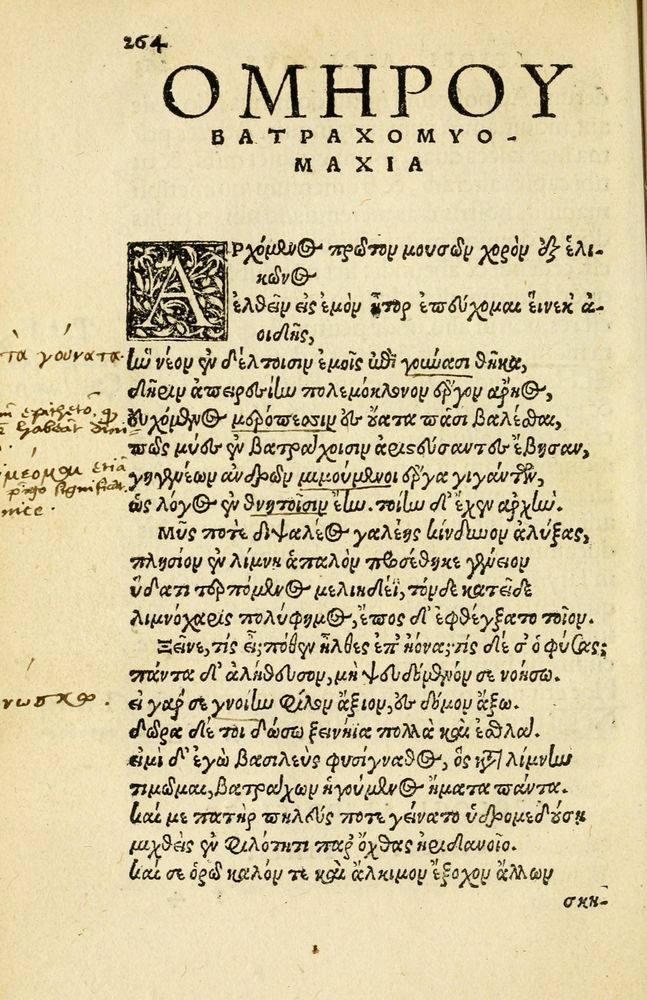 264
ΟΜΗΡΟΥ
ΒΑΤΡΑΧΟΜΥΟ-
ΜΑΧΙΑ
Αρχόμενος πρῶτον μουσῶν χορὸν ἐξ ἑλι-
κῶνος
ἐλθεῖν εἰς ἐμὸν ἦτορ ἐπεύχομαι εἵνεκ' ἀ-
οιδῆς,
ἣν νέον ἐν δέλτοισιν ἐμοῖς ἐπὶ γούνασι θῆκα,
δῆριν ἀπειρεσίην πολεμόκλονον ἔργον ἄρηος,
εὐχόμενος μερόπεσσιν ἐς οὔατα πᾶσι βαλέσθαι,
πῶς μύες ἐν βατράχοισιν ἀριστεύσαντες ἔβησαν,
γηγενέων ἀνδρῶν μιμούμενοι ἔργα γιγάντων,
ὡς λόγος ἐν θνητοῖσιν ἔην. τοίην δ' ἔχεν ἀρχήν.
Μῦς ποτὲ διψαλέος γαλέης κίνδυνον ἀλύξας,
πλησίον ἐν λίμνῃ ἁπαλὸν προσέθηκε γένειον
ὕδατι τερπόμενος μελιηδέϊ, τὸν δὲ κατεῖδε
λιμνόχαρις πολύφημος, ἔπος δ' ἐφθέγξατο τοῖον.
Ξεῖνε, τίς εἶ; πόθεν ἦλθες ἐπ' ἠόνα; τίς δέ σ' ὁ φύσας;
πάντα δ' ἀλήθευσον, μὴ ψευδόμενόν σε νοήσω.
εἰ γάρ σε γνοίην φίλον ἄξιον, ἐς δόμον ἄξω.
δῶρα δέ τοι δώσω ξεινήϊα πολλὰ καὶ ἐσθλά.
εἰμὶ δ' ἐγὼ βασιλεὺς φυσίγναθος, ὃς κατὰ λίμνην
τιμῶμαι, βατράχων ἡγούμενος ἤματα πάντα.
καί με πατὴρ πηλεύς ποτε γείνατο ὑδρομεδούσῃ
μιχθεὶς ἐν φιλότητι παρ' ὄχθας ἠριδανοῖο.
καί σε ὁρῶ καλόν τε καὶ ἄλκιμον ἔξοχον ἄλλων
σκη-
τὰ γούνατα.